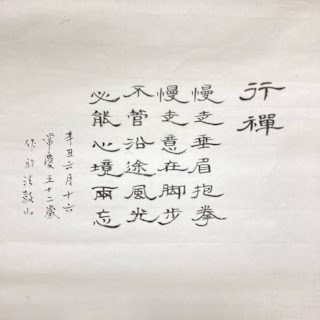 行禪
慢走垂眉抱拳
慢走意在脚步
不管沿途風光
必能心境兩忘
辛丑六月十六
常慶五十二歲
作於法鼓山